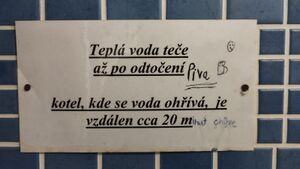 Teplá voda teče
až po odtočení Piva
kotel, kde se voda ohřívá, je
vzdálen cca 20 m